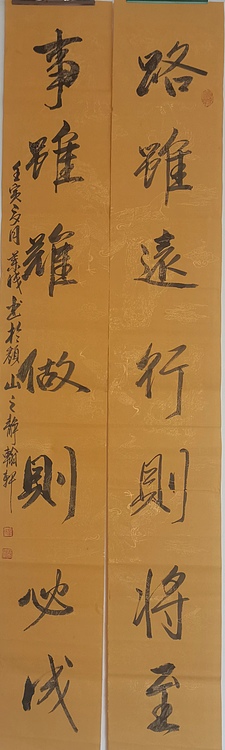 路雖遠行則將至
事雖難做則必成
壬寅冬月業成書於顏山之靜翰軒